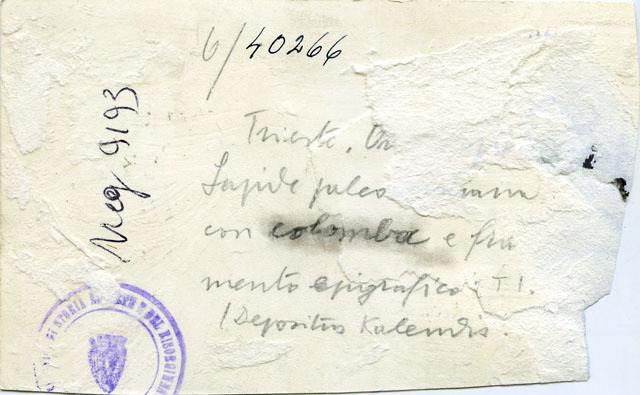 6/40266
Neg 9193
Trieste.
Lapide
con colomba e fra
mento epigrafico: TI.
/Depositus Kalendis.
DI STORIA E DEL RISORGIMEN